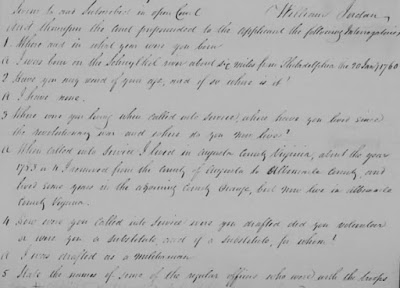 Sworn to and Subscribed in open Court William Jordan
And thereupon the Court propounded to the applicant the following Interrogatories
1. Where and in what year were you born
A I was born on the Schuylkill river about six miles from Philadelphia the 20 Jany 1760
2 Have you any record of your age, and if so where is it?
A I have none.
3 Where were you living when called into service; where have you lived since
the revolutionary war and where do you now live?
A When called into service I lived in Augusta County Virginia, about the year
1783 or 4 I removed from the County of Augusta to Albemarle County, and
lived some years in the adjoining County Orange, but now live in Albemarle
County Virginia.
4 How were you called into service were you drafted did you volunteer
or were you a substitute, and if a substitute, for whom?
A I was drafted as a militiaman
5 State the names of some of the regular officers who were with the troops